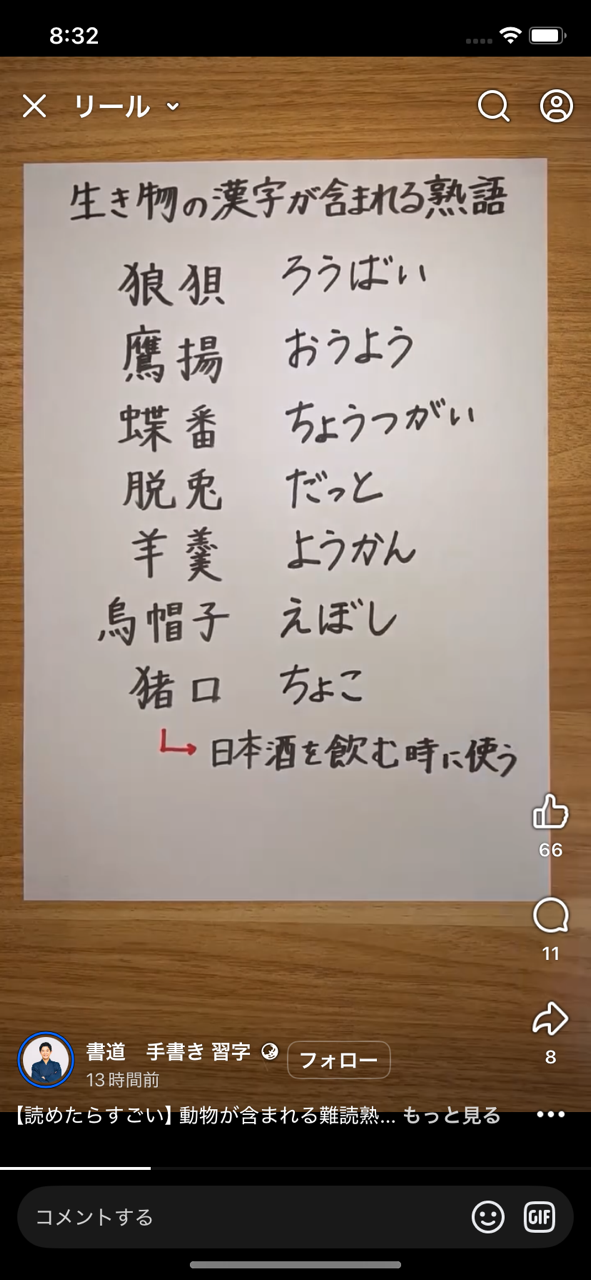 8:32
リール
生き物の漢字が含まれる熟語
狼狽 ろうばい
鷹揚 おうよう
蝶番 ちょうつがい
脱兎 だっと
羊羹 ようかん
烏帽子 えぼし
猪口 ちょこ
日本酒を飲む時に使う
66
11
8
書道 手書き 習字
フォロー
13時間前
【読めたらすごい】動物が含まれる難読熟... もっと見る
コメントする
GIF